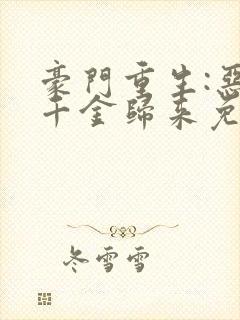 豪門重生:惡
千金歸來免
冬雪雪